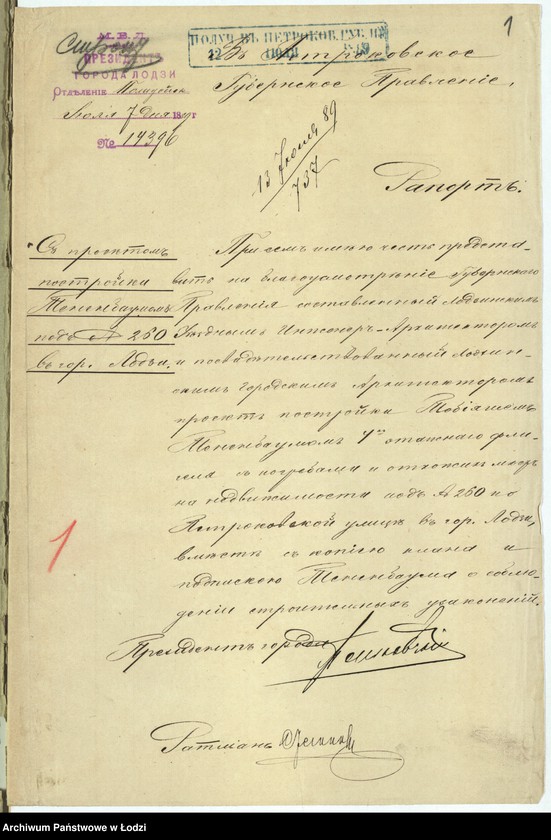 1
М. В. Д.
ПРЕЗИДЕНТЪ
ГОРОДА ЛОДЗИ
Отдѣленіе
Іюля 7 дня 18 г
№ 14396
ПОЛУЧ. ВЪ ПЕТРОКОВ. ГУБ. ПР.
12 ІЮЛЯ
Въ Петроковское
Губернское Правленіе.
13 Іюля 89
737
Рапортъ.
Съ проэктомъ
постройки
Тененбаумомъ
подъ № 260
въ гор. Лодзи.
При семъ имѣю честь предста-
вить на благоусмотрѣніе Губернскаго
Правленія составленный Лодзинскимъ
Уѣзднымъ Инженеръ-Архитекторомъ
и посвидѣтельствованный Лодзин-
скимъ Городскимъ Архитекторомъ
проэктъ постройки Товіяшемъ
Тененбаумомъ 4хъ этажнаго фли-
геля съ погребами и отхожихъ мѣстъ
на недвижимости подъ № 260 по
Петроковской улицѣ въ гор. Лодзи,
вмѣстѣ съ копіею плана и
подпискою Тененбаума о соблю-
деніи строительныхъ узаконеній.
Президентъ города
Ратманъ
1
Archiwum Państwowe w Łodzi